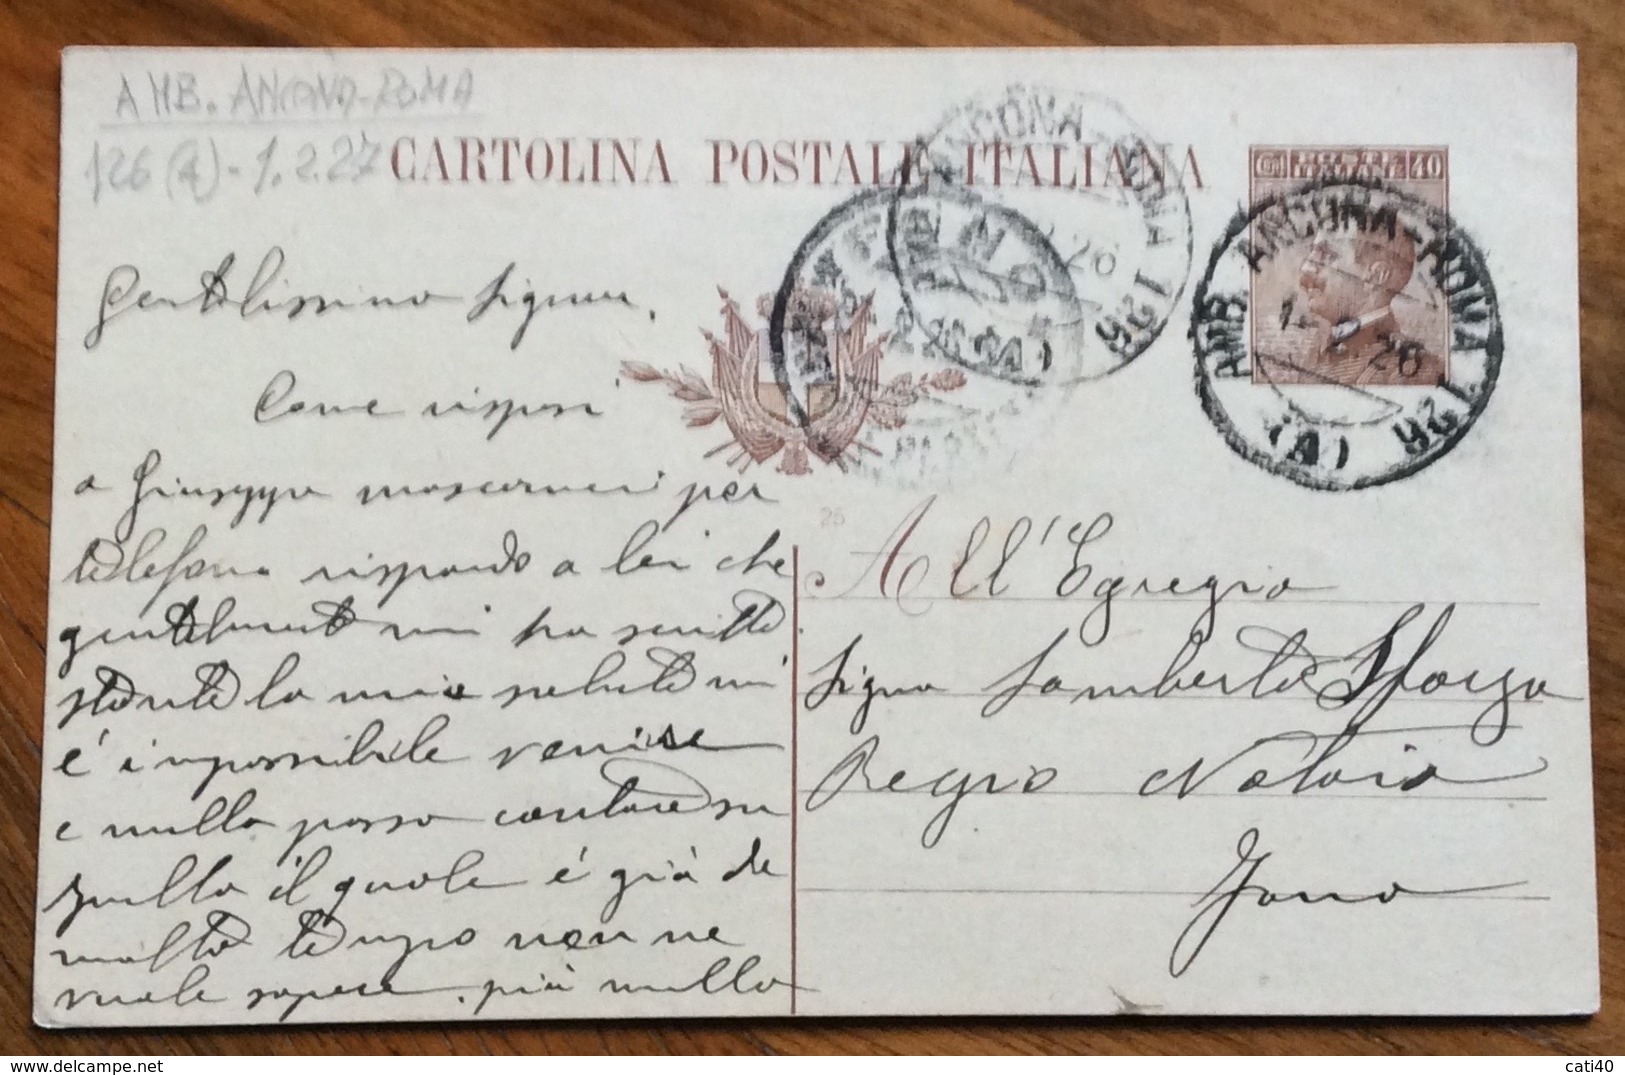 AMB. ANCONA-ROMA
126 (A) - 1.2.27
CARTOLINA POSTALE ITALIANA
POSTE ITALIANE
40
AMB. ANCONA-ROMA 126
(A)
1- 2 26
ANCONA - ROMA 126
26
Gentilissimo Signor
Come risposi
a Giuseppe per
telefono rispondo a lei che
gentilmente mi ha scritto
stante la mia salute mi
é impossibile venire
e nulla posso contare su
quello il quale é già da
molto tempo non ne
vuole sapere. più nulla
25
All'Egregio
Signor Lamberto Sforza
Regio Notaio
cati40